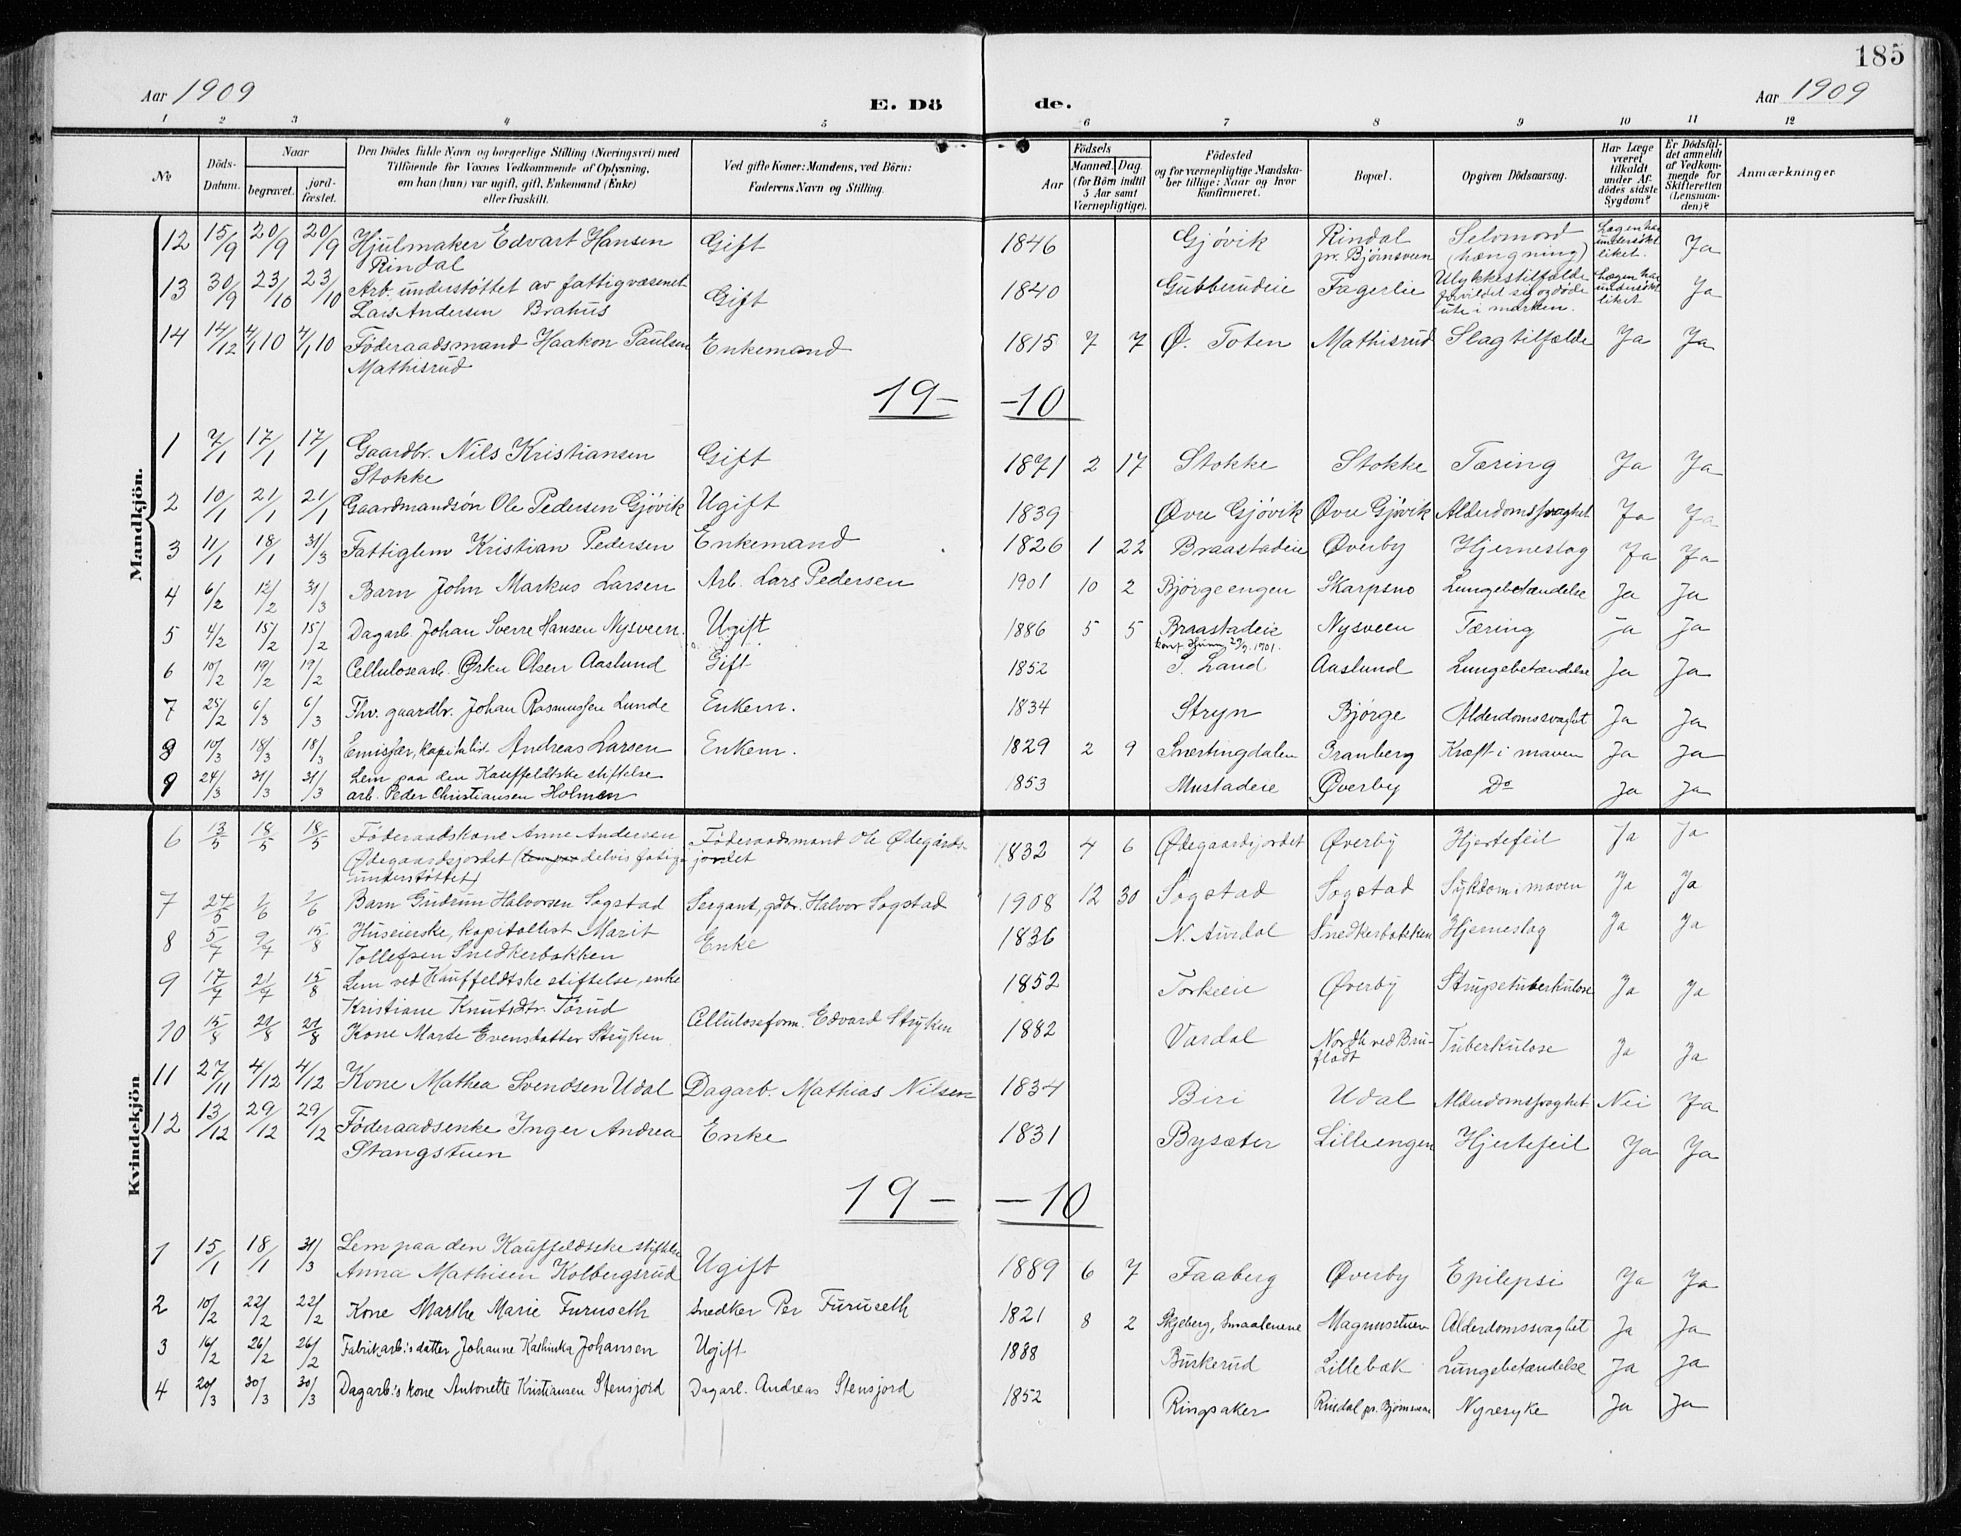 185
Aar 1909 E. Dö de. Aar 1909
1 2 3 4 5 6 7 8 9 10 11 12
№
Döds-Datum.
Naar
begravet.
jord-fæstet.
Den Dödes fulde Navn og borgerlige Stilling (Næringsvei) med
Tilföiende for Voxnes Vedkommende af Oplysning,
om han (hun) var ugift, gift, Enkemand (Enke)
eller fraskilt.
Ved gifte Koner: Mandens, ved Börn:
Faderens Navn og Stilling.
Födsels
Aar
Maaned. Dag.
(for Börn indtil
5 Aar samt
Værnepligtige).
Födested
og for værnepligtige Mandska-
ber tillige: Naar og hvor
konfirmeret.
Bopæl.
Opgiven Dödsaarsag.
Har Læge
været
tilkaldt
under Af-
dödes sidste
Sygdom?
Er Dödsfal-
det anmeldt
af Vedkom-
mende for
Skifteretten
(Lensman-
den)?
Anmærkninger.
Mandkjön.
12 15/9 20/9 20/9 Hjulmaker Edvart Hansen Gift 1846 Gjøvik Rindal Selvmord Lægen har Ja
Rindal pr. Bjørnsveen (hængning) undersøkt
liket.
13 30/9 23/10 23/10 Arb. understøttet av fattigvæsenet Gift 1840 Gubberudeie Fagerlie Ulykkestilfælde Lægen har Ja
Lars Andersen Brahus forvildet sig og døde undersøkt
ute i marken. liket
14 14/12 4/1 10 4/1 10 Føderaadsmand Haakon Paulsen Enkemand 1815 7 7 Ø. Toten Mathisrud Slagtilfælde Ja Ja
Mathisrud
19- -10
1 7/1 17/1 17/1 Gaardbr. Nils Kristiansen Gift 1871 2 17 Stokke Stokke Tæring Ja Ja
Stokke
2 10/1 21/1 21/1 Gaardmandsøn Ole Pedersen Gjøvik Ugift 1839 Øvre Gjøvik Øvre Gjøvik Alderdomssvaghet Ja Ja
3 11/1 18/1 31/3 Fattiglem Kristian Pedersen Enkemand 1826 1 22 Braastadeie Øverby Hjerneslag Ja Ja
4 6/2 12/2 31/3 Barn John Markus Larsen Arb. Lars Pedersen 1901 10 2 Bjørgeengen Skarpsno Lungebetændelse Ja Ja
5 4/2 15/2 15/2 Dagarb. Johan Sverre Hansen Nysveen. Ugift 1886 5 5 Braastadeie Nysveen Tæring Ja Ja
6 10/2 19/2 19/2 Cellulosearb. Ørku Olsen Aaslund Gift 1852 S. Land Aaslund Lungebetændelse Ja Ja
7 25/2 6/3 6/3 Fhv. gaardbr. Johan Rasmussen Lunde Enkem. 1834 Stryn Bjørge Alderdomssvaghet Ja Ja
8 10/3 18/3 18/3 Emissær, kapitalist Andreas Larsen Enkem. 1829 2 9 Snertingdalen Granberg Kræft i maven Ja Ja
9 24/3 31/3 31/3 Lem paa den Kauffeldtske stiftelse
arb. Peder Christiansen Holmen 1853 Mustadeie Øverby Do Ja Ja
Kvindekjön
6 13/5 18/5 18/5 Føderaadskone Anne Andersen Føderaadsmand Ole Ødegårds- 1832 4 6 Ødegaardsjordet Øverby Hjertefeil Ja Ja
Ødegaardsjordet (delvis fattig- jordet
understøttet)
7 24/5 1/6 1/6 Barn Gudrun Halvorsen Sogstad Sergant, gdbr. Halvor Sogstad 1908 12 30 Sogstad Sogstad Sykdom i maven Ja Ja
8 5/7 9/7 15/8 Huseierske, kapitalist Marit Enke 1836 N. Aurdal Snedkerbakken Hjerneslag Ja Ja
Tollefsen Snedkerbakken
9 17/7 21/7 15/8 Lem ved Kauffeldtske stiftelse, enke 1852 Torkeie Øverby Strupetuberkulose Ja Ja
Kristiane Knutsdtr. Torud
10 15/8 21/8 21/8 Kone Marte Evensdatter Stryken Celluloseform. Edvard Stryken 1882 Vardal Nordli ved Bru- Tuberkulose Ja Ja
fladt
11 27/11 4/12 4/12 Kone Mathea Svendsen Udal Dagarb. Mathias Nilsen 1834 Biri Udal Alderdomssvaghet Nei Ja
12 13/12 29/12 29/12 Føderaadsenke Inger Andrea Enke 1831 Bysæter Lilleengen Hjertefeil Ja Ja
Stangstuen
19- -10
1 15/1 18/1 31/3 Lem paa den Kauffeldske stiftelse
Anna Mathisen Kolbergsrud Ugift 1889 6 7 Faaberg Øverby Epilepsi Ja Ja
2 10/2 22/2 22/2 Kone Marthe Marie Furuseth Snedker Per Furuseth 1821 8 2 Skjeberg, Smaalenene Magnusstuen Alderdomssvaghet Ja Ja
3 16/2 26/2 26/2 Fabrikarb.'s datter Johanne Kathinka Johansen Ugift 1888 Buskerud Lillebæk Lungebetændelse Ja Ja
4 20/3 30/3 30/3 Dagarb.'s kone Antonette Kristiansen Stensjord Dagarb. Andreas Stensjord 1852 Ringsaker Rindal pr. Bjørnsveen Nyresyke Ja Ja